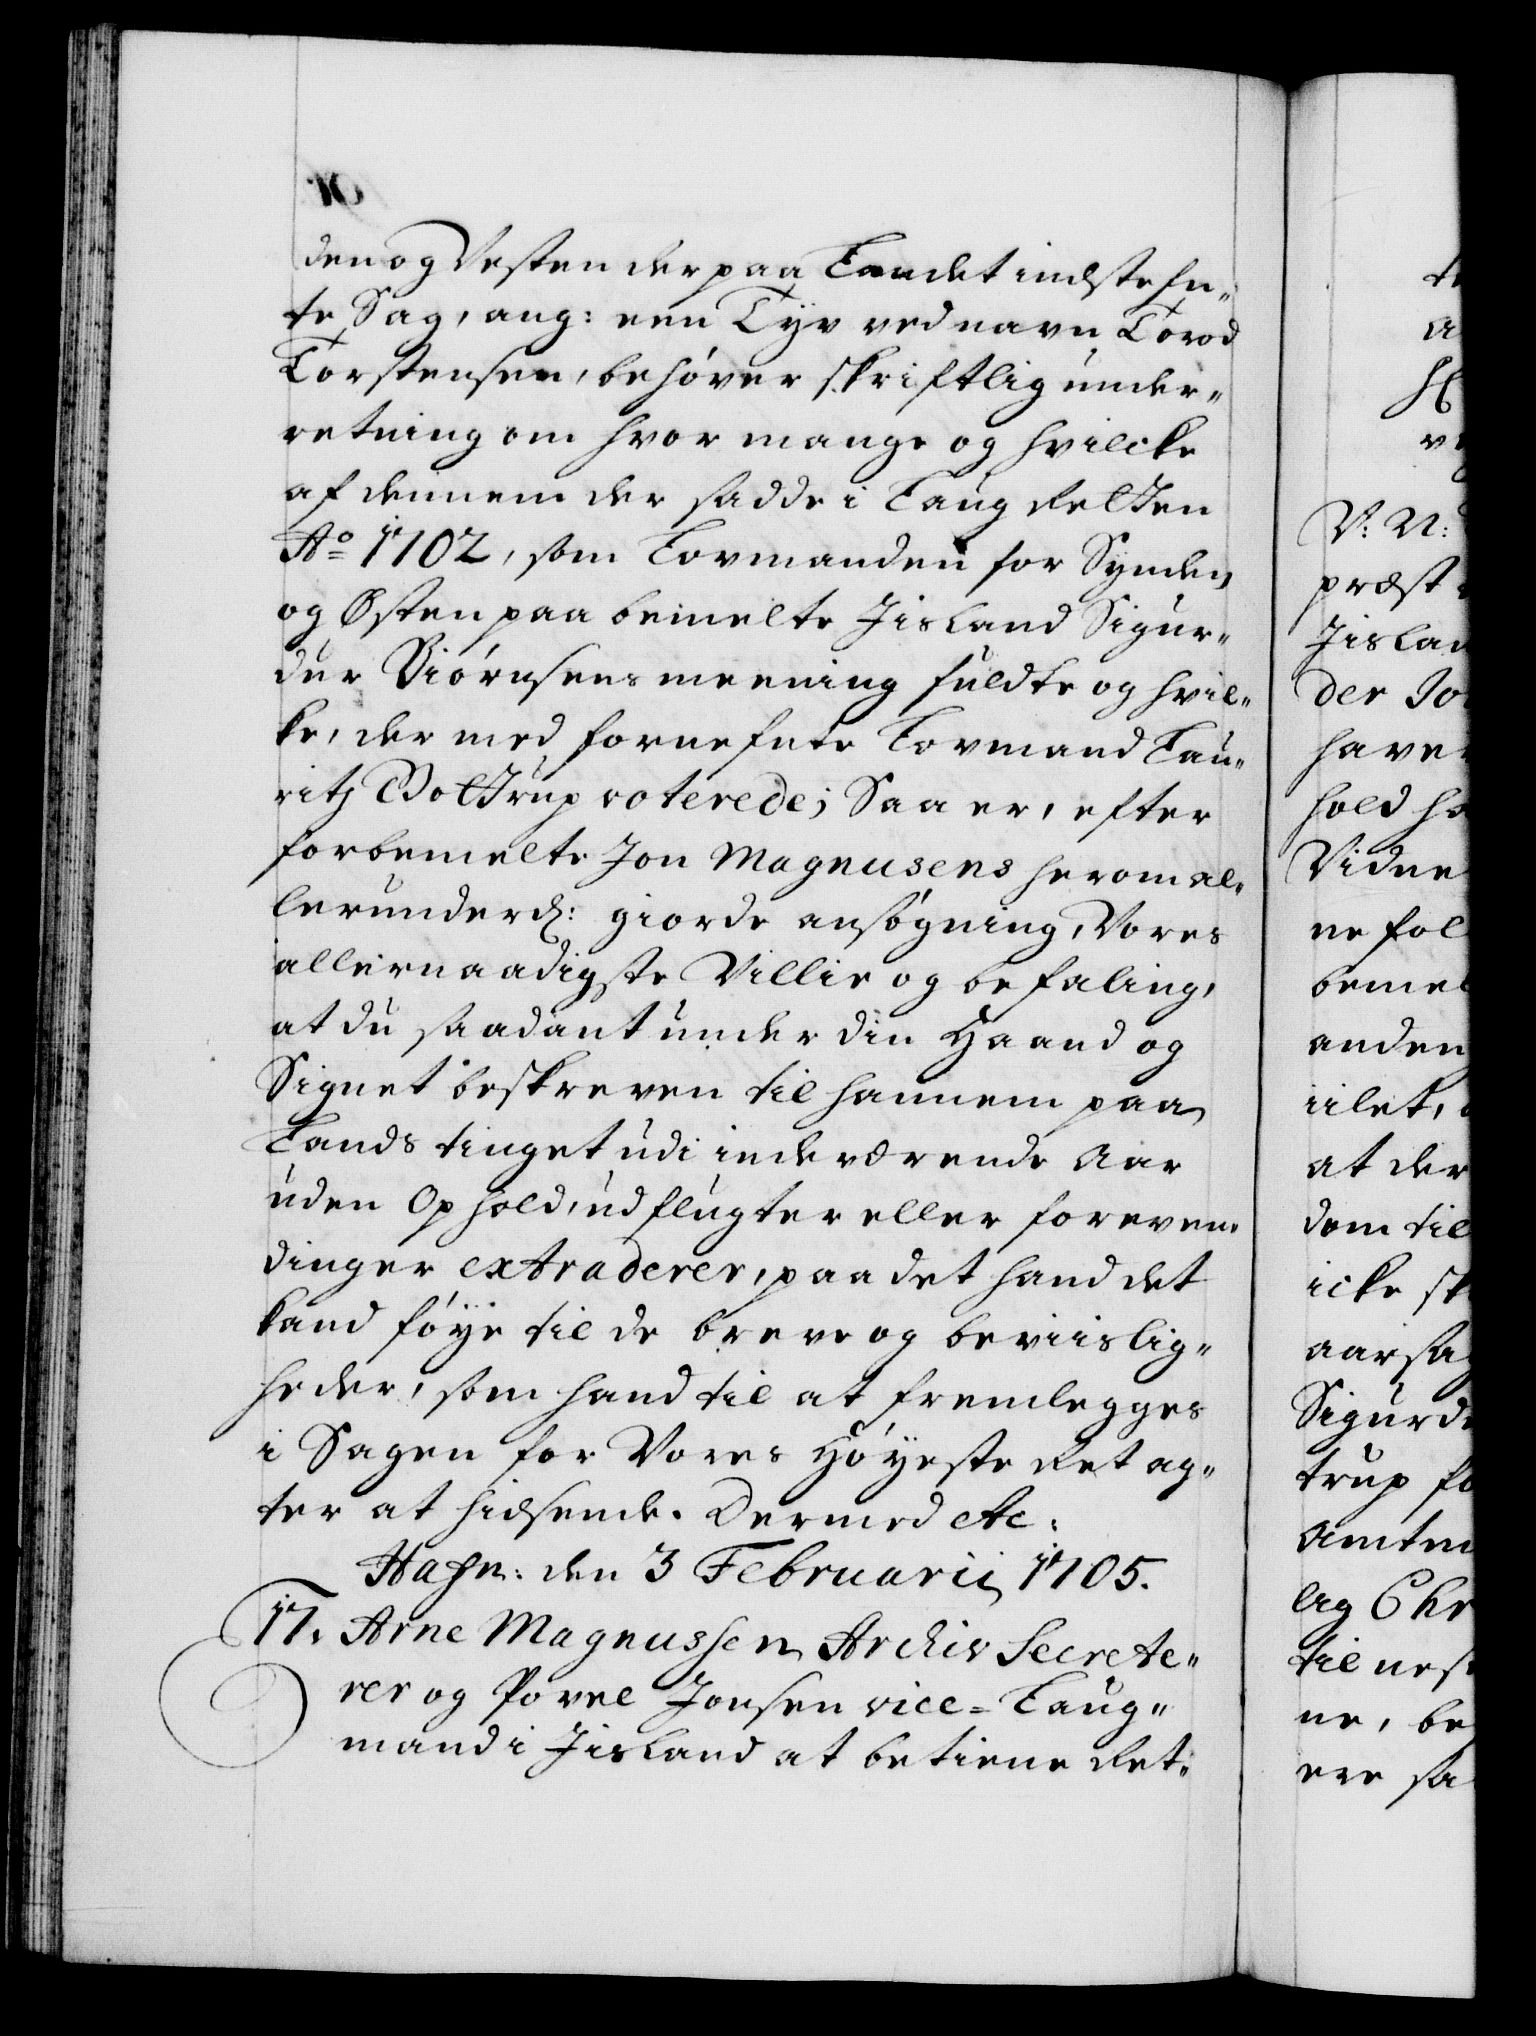 den og Vesten der paa Landet indstefn„
te Sag, ang: een Tyv ved navn Torod
Torstensen, behöver skriftlig under„
retning om hvor mange og hvilcke
af dennem der sadde i Laug Retten
Aº 1702, som Lovmanden for Synden
og Østen paa bemelte Jisland Sigur„
dur Biörnsens meening fuldte og hvil„
ke, der med fornefnte Lovmand Lau„
ritz Gottrup voterede; Saa er, efter
forbemelte Jon Magnusens herom al„
lerunderd: giorde ansögning, Vores
allernaadigste Villie og befaling,
at du saadant under din Haand og
Signet beskreven til hannem paa
Lands tinget udi indeværende Aar
uden Ophold, udflugter eller foreven„
dinger extraderer, paa det hand det
kand föye til de breve og beviislig„
heder, som hand til at fremlegges
i Sagen for Vores Höyeste Ret ag„
ter at hidsende. Dermed etc:
Hafn: den 3 Februarii 1705.
17. Arne Magnussen Archiv Secrete„
rer og Povel Jonsen vice=Laug„
mand i Jisland at betiene Ret„
V: N:
præst
Jislan
der Jo
have
hold ha
Vidne
ne fol
bemel
anden
iilet,
at der
dom til
icke sk
aarsag
Sigurd
trup fo
Amtm
lig Chr
til nes
ne, be
ere sa